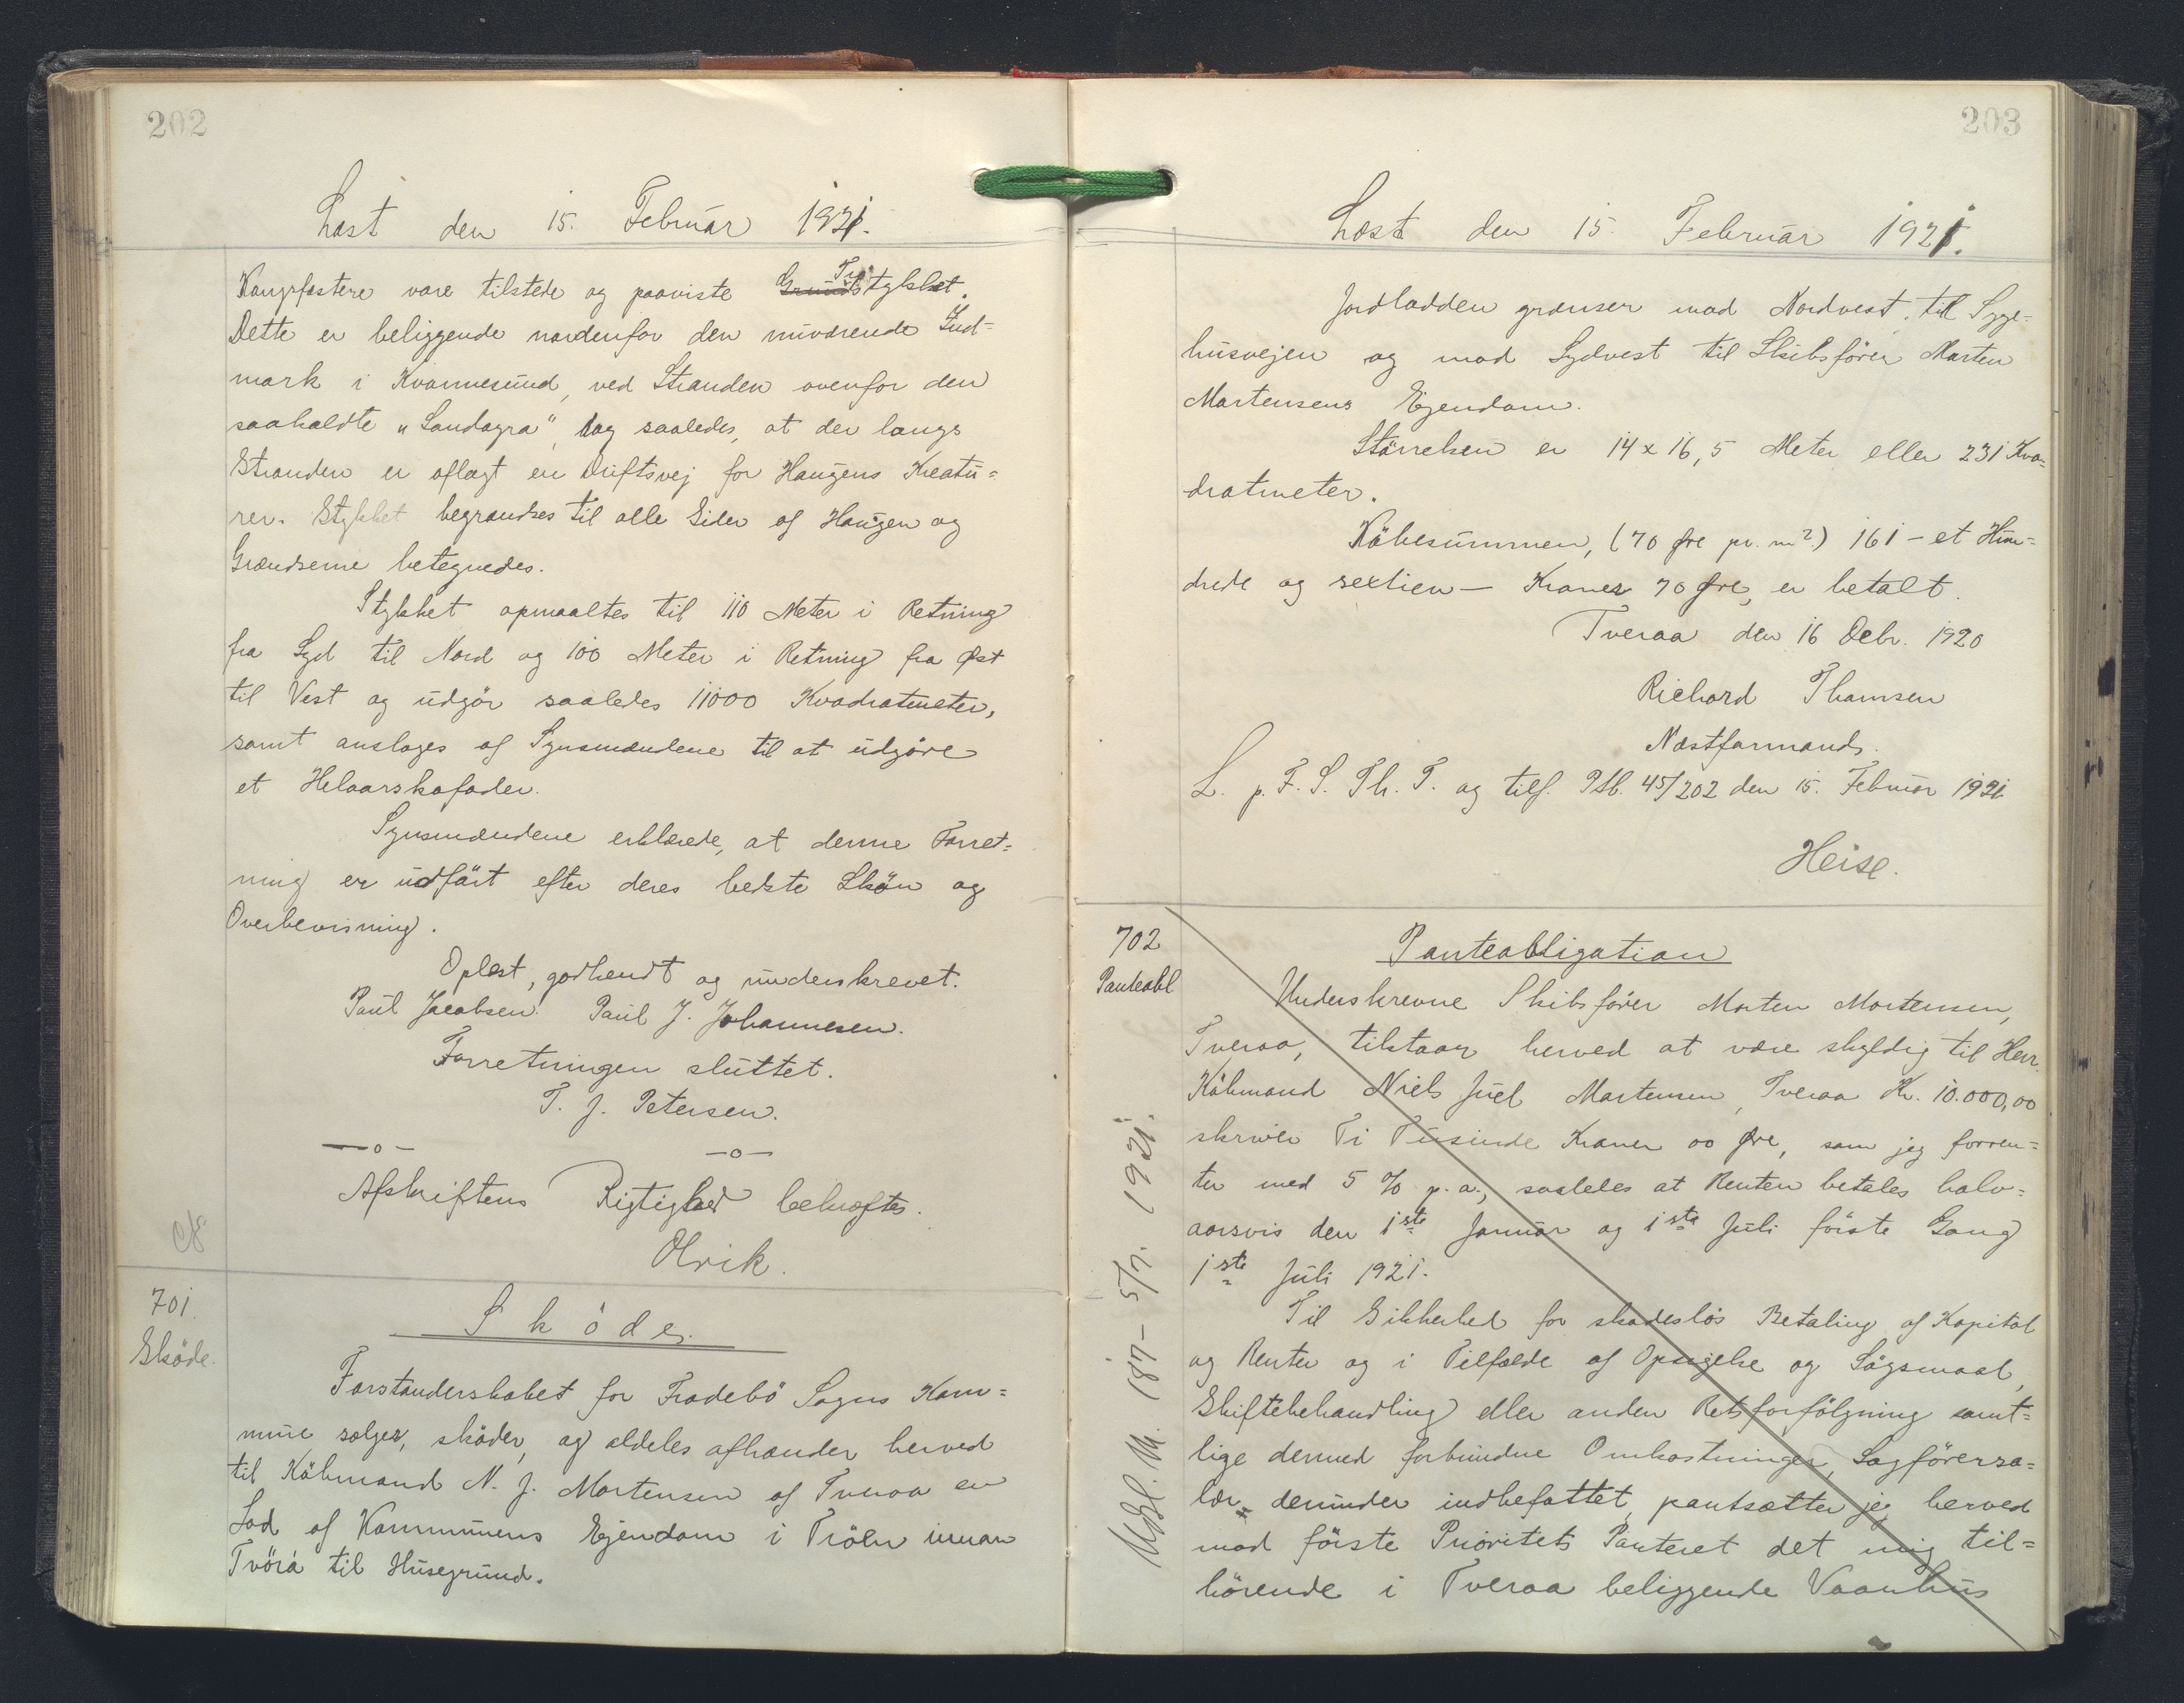 202
Læst den 15. Februar 1921.
Kongsfæstere vare tilstede og paaviste Grunds Trøstykket.
Dette er beliggende nordenfor den nuværende Ind=
mark i Kvannesund, ved Stranden ovenfor den
saakaldte „Sandagra", dog saaledes, at der langs
Stranden er aflagt en Driftsvej for Haugens Kreatu=
rer. Stykket begrændses til alle Sider af Haugen og
Grændserne betegnedes.
Stykket opmaaltes til 110 Meter i Retning
fra Syd til Nord og 100 Meter i Retning fra Øst
til Vest og udgör saaledes 11000 Kvadratmeter,
samt anslages af Synsmændene til at udgöre
et Helaarskofoder.
Synsmændene erklærede, at denne Forret=
ning er udfört efter deres bedste Skön og
Overbevisning.
Oplæst, godkendt og underskrevet.
Paul Jacobsen. Paul J. Johannesen.
Forretningen sluttet.
T. J. Petersen.
—o— —o—
Afskriftens Rigtighed bekræftes.
Olrik.
701.
Sköde.
Sköde.
Forstanderskabet for Frodebö Sogns Kom=
mune sælger, sköder og aldeles afhænder herved
til Köbmand N. J. Mortensen af Tveraa en
Lod af Kommunens Ejendom i Trölu innan
Tvörá til Husegrund.
203
Læst den 15. Februar 1921.
Jordlodden grænser mod Nordvest til Syge=
husvejen og mod Sydvest til Skibsförer Morten
Mortensens Ejendom.
Störrelsen er 14 x 16,5 Meter eller 231 Kva=
dratmeter.
Köbesummen, (70 Øre pr. m²) 161 – et Hun=
drede og sextien – Kroner 70 Øre, er betalt.
Tveraa den 16 Debr. 1920
Richard Thomsen
Næstformand.
L. p. F. S. Th. T. og tilf. Ptb. 45/202 den 15. Februar 1921
Heise.
702
Panteobl
Panteobligation
Underskrevne Skibsförer Morten Mortensen,
Tveraa, tilstaar herved at være skyldig til Herr.
Köbmand Niels Juel Mortensen, Tveraa Kr. 10.000,00
skriver Ti Tusinde Kroner 00 Øre, som jeg forren=
ter med 5 % p. a., saaledes at Renten betales halv=
aarsvis den 1ste Januar og 1ste Juli förste Gang
1ste Juli 1921.
Til Sikkerhed for skadeslös Betaling af Kapital
og Renter og i Tilfælde af Opsigelse og Sögsmaal,
Skiftebehandling eller anden Retsforfölgning samt=
lige dermed forbundne Omkostninger, Sagförersa=
lær derunder indbefattet, pantsætter jeg herved
mod förste Prioritets Panteret det mig til=
hörende i Tveraa beliggende Vaanhus
187 – 5/7. 1921.